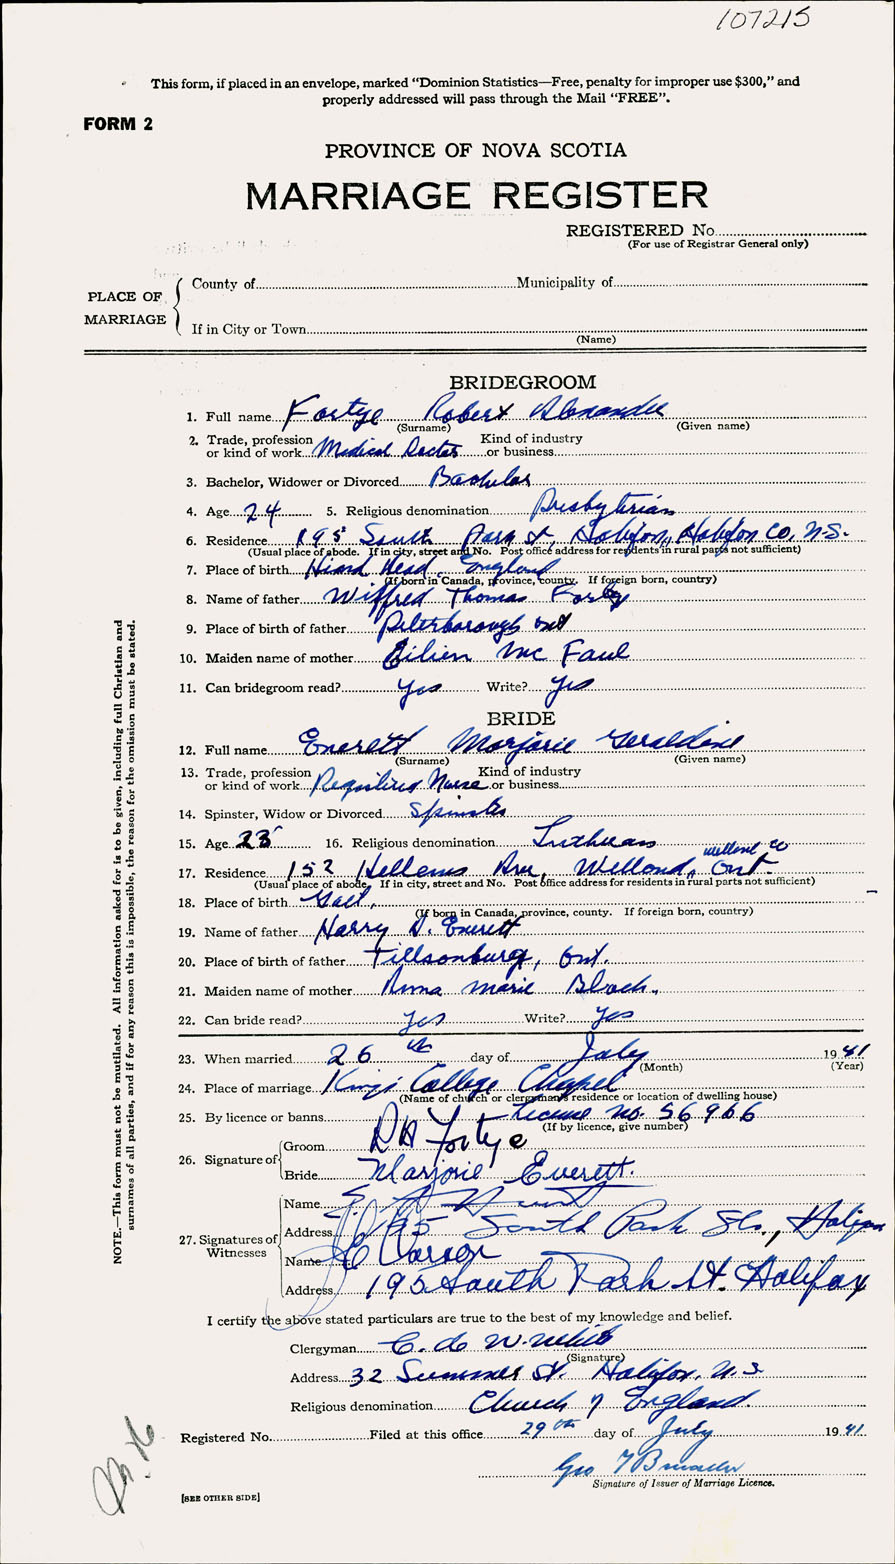 107215
This form, if placed in an envelope, marked “Dominion Statistics—Free, penalty for improper use $300,” and
properly addressed will pass through the Mail “FREE”.
FORM 2
PROVINCE OF NOVA SCOTIA
MARRIAGE REGISTER
REGISTERED No.
(For use of Registrar General only)
PLACE OF MARRIAGE
County of Municipality of
If in City or Town
(Name)
BRIDEGROOM
1. Full name Fortye Robert Alexander
(Surname) (Given name)
2. Trade, profession or kind of work Medical Doctor Kind of industry or business
3. Bachelor, Widower or Divorced Bachelor
4. Age 24 5. Religious denomination Presbyterian
6. Residence 195 South Park St, Halifax, Halifax Co, N.S.
(Usual place of abode. If in city, street and No. Post office address for residents in rural parts not sufficient)
7. Place of birth Head, England
(If born in Canada, province, county. If foreign born, country)
8. Name of father Wilfred Thomas
9. Place of birth of father Peterborough Ont
10. Maiden name of mother Eilien Mc Faul
11. Can bridegroom read? Yes Write? Yes
BRIDE
12. Full name Everett Marjorie Geraldine
(Surname) (Given name)
13. Trade, profession or kind of work Registered Nurse Kind of industry or business
14. Spinster, Widow or Divorced Spinster
15. Age 23 16. Religious denomination Lutheran
Welland Co
17. Residence 152 Hellems Ave, Welland, Ont.
(Usual place of abode. If in city, street and No. Post office address for residents in rural parts not sufficient)
18. Place of birth Galt,
(If born in Canada, province, county. If foreign born, country)
19. Name of father Harry D. Everett
20. Place of birth of father Tillsonburg, Ont.
21. Maiden name of mother Anna Marie Block.
22. Can bride read? Yes Write? Yes
23. When married 26th day of July 1941
(Month) (Year)
24. Place of marriage Kings College Chapel
(Name of church or clergyman's residence or location of dwelling house)
25. By licence or banns License No. 56966
(If by licence, give number)
26. Signature of
Groom RA Fortye
Bride Marjorie Everett.
27. Signatures of Witnesses
Name
Address 195 South Park St., Halifax
Name
Address 195 South Park St. Halifax
I certify the above stated particulars are true to the best of my knowledge and belief.
Clergyman C. de W. White
(Signature)
Address 32 Summer St. Halifax, N.S
Religious denomination Church of England.
Registered No. Filed at this office 29th day of July 1941
Geo
Signature of Issuer of Marriage Licence.
[SEE OTHER SIDE]
NOTE.—This form must not be mutilated. All information asked for is to be given, including full Christian and
surnames of all parties, and if for any reason this is impossible, the reason for the omission must be stated.